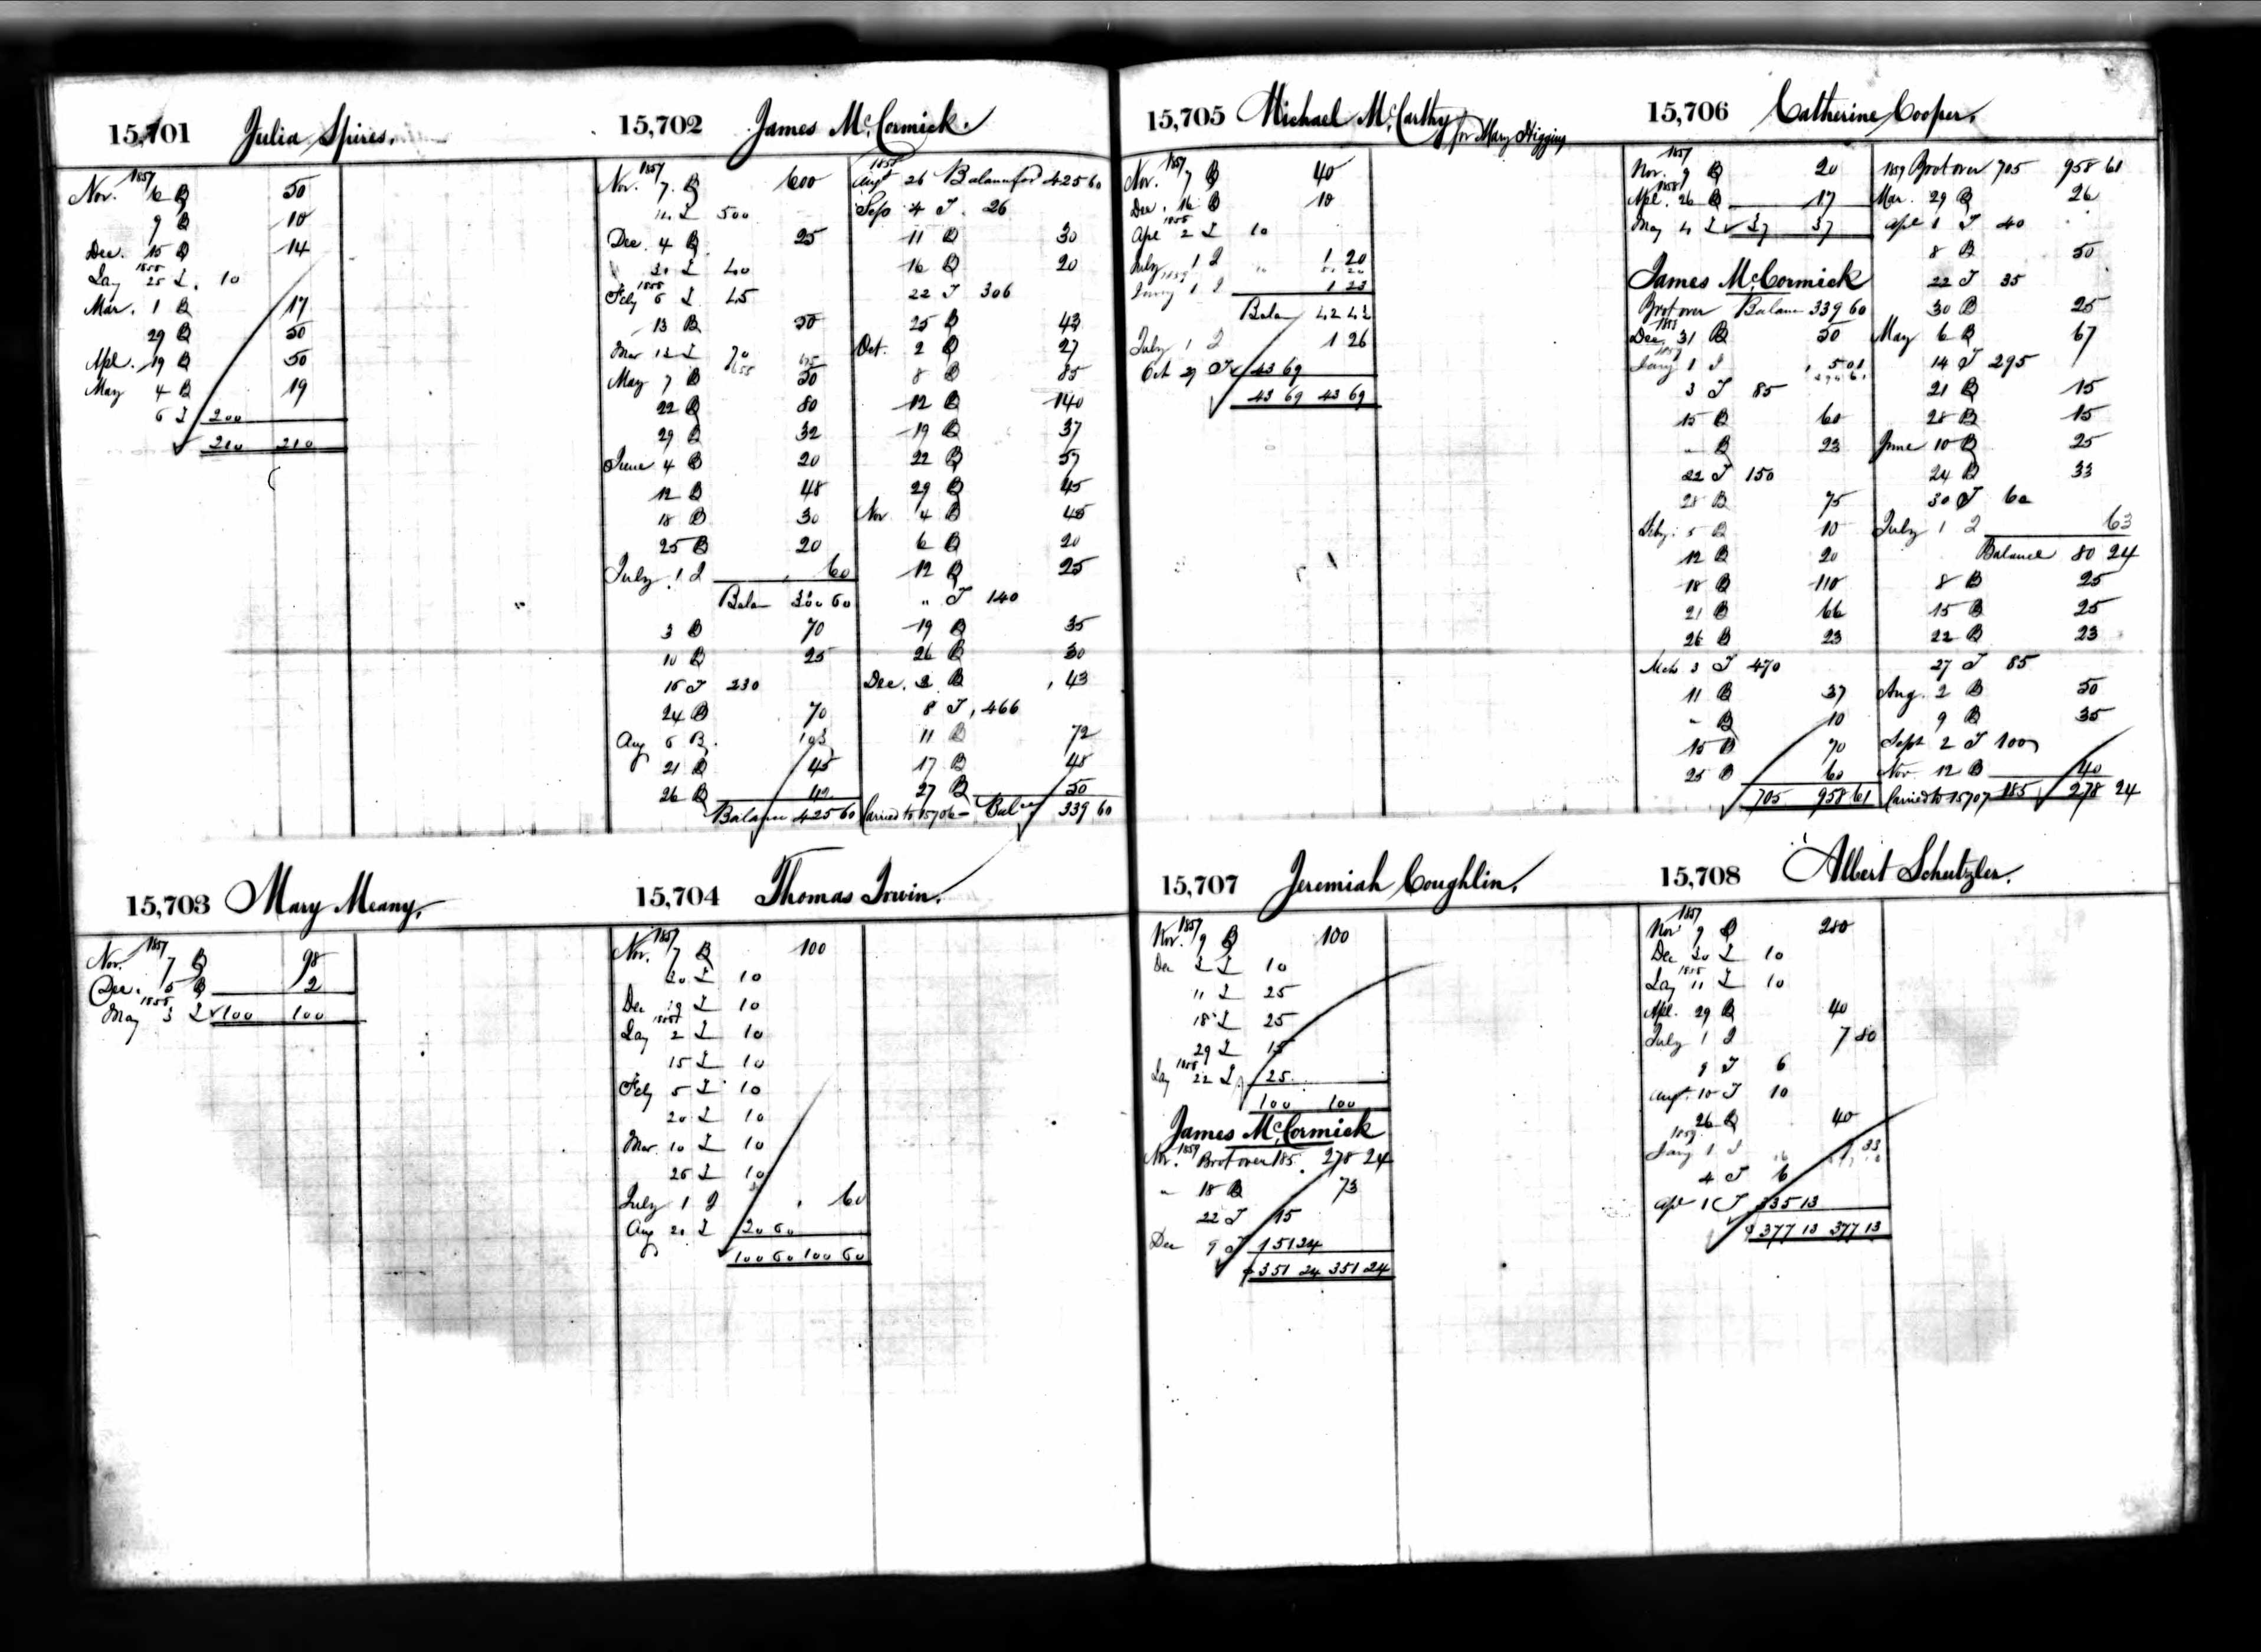 15,701 Julia Spires.
1857
Nov. 6 B 50
9 B 10
Dec. 15 B 14
1858
Jay 25 L. 10
Mar. 1 B 17
29 B 50
Apl. 19 B 50
May 4 B 19
6 L 200
210 210
15,702 James McCormick.
1857
Nov. 7. B 600
12. L 500
Dec. 4 B 25
L 40
1858
Feby 6 L 45
13 B 50
Mar 12 L 70
May 7 B 50
22 B 80
29 B 32
June 4 B 20
12 B 48
18 B 30
25 B 20
July 1 I 60
Balan 300 60
3 B 70
10 B 25
16 J 230
24 B 70
Aug 6 B. 103
21 B 45
26 B 42
Balance 425 60
1858
Augt 26 Balance for 425 60
Sep 4 J. 26
11 B 30
16 B 20
22 J 306
25 B 43
Oct. 2 B 27
8 B 85
12 B 140
19 B 37
22 B 57
29 B 45
Nov 4 B 45
6 B 20
12 B 25
" J 140
19 B 35
26 B 30
Dec. 3 B 43
8 J 466
11 B 72
17 B 48
27 B 50
Carried to 15706 - Balce 339 60
15,703 Mary Meany,
1857
Nov. 7 B 98
Dec. 5 B 2
1858
May 3 L 100 100
15,704 Thomas Irwin.
1857
Nov. 7 B 100
20 L 10
Dec 19 L 10
1858
Jay 2 L 10
15 L 10
Feby 5 L 10
20 L 10
Mar. 10 L 10
25 L 10
July 1 I 60
Aug 21 L 20 60
100 60 100 60
15,705 Michael McCarthy for Mary Higgins
1857
Nov. 7 B 40
Dec. 16 B 10
1858
Apl 2 L 10
July 1 I 1 20
1859
Jany 1 I 1 23
Balan 42 43
July 1 I 1 26
Oct 29 J 43 69
43 69 43 69
15,706 Catherine Cooper.
1857
Nov. 9 B 20
1858
Apl. 26 B 17
May 4 L 37 37
James McCormick
Brot over Balance 339 60
1858
Dec 31 B 50
1859
Jany 1 I 5 01
3 J 85
15 B 60
" B 23
22 J 150
28 B 75
Feby. 5 B 10
12 B 20
18 B 110
21 B 66
26 B 23
Mch 3 J 470
11 B 37
" B 10
15 B 70
25 B 60
705 958 61
1859 Brot over 705 958 61
Mar. 29 B 26
Apl 1 J 40
8 B 50
22 J 35
30 B 25
May 6 B 67
14 J 295
21 B 15
28 B 15
June 10 B 25
24 B 33
30 J 60
July 1 I 63
Balance 80 24
8 B 25
15 B 25
22 B 23
27 J 85
Aug. 2 B 50
9 B 35
Sept 2 J 100
Nov. 12 B 40
Carried to 15707 185 278 24
15,707 Jeremiah Coughlin.
1857
Nov. 9 B 100
Dec 3 L 10
11 L 25
18 L 25
29 L 15
1858
Jay 22 L 25
100 100
James McCormick
1859
Nov. Brot over 185. 278 24
" 18 B 73
22 J 15
Dec 9 J 151 24
$351 24 351 24
15,708 Albert Schutzler.
1857
Nov 9 B 280
Dec 30 L 10
1858
Jay 11 L 10
Apl. 29 B 40
July 1 I 7 80
9 J 6
Augt. 10 J 10
26 B 40
1859
Jany 1 I 9 33
4 J 6
Apl 1 J 335 13
$377 13 377 13